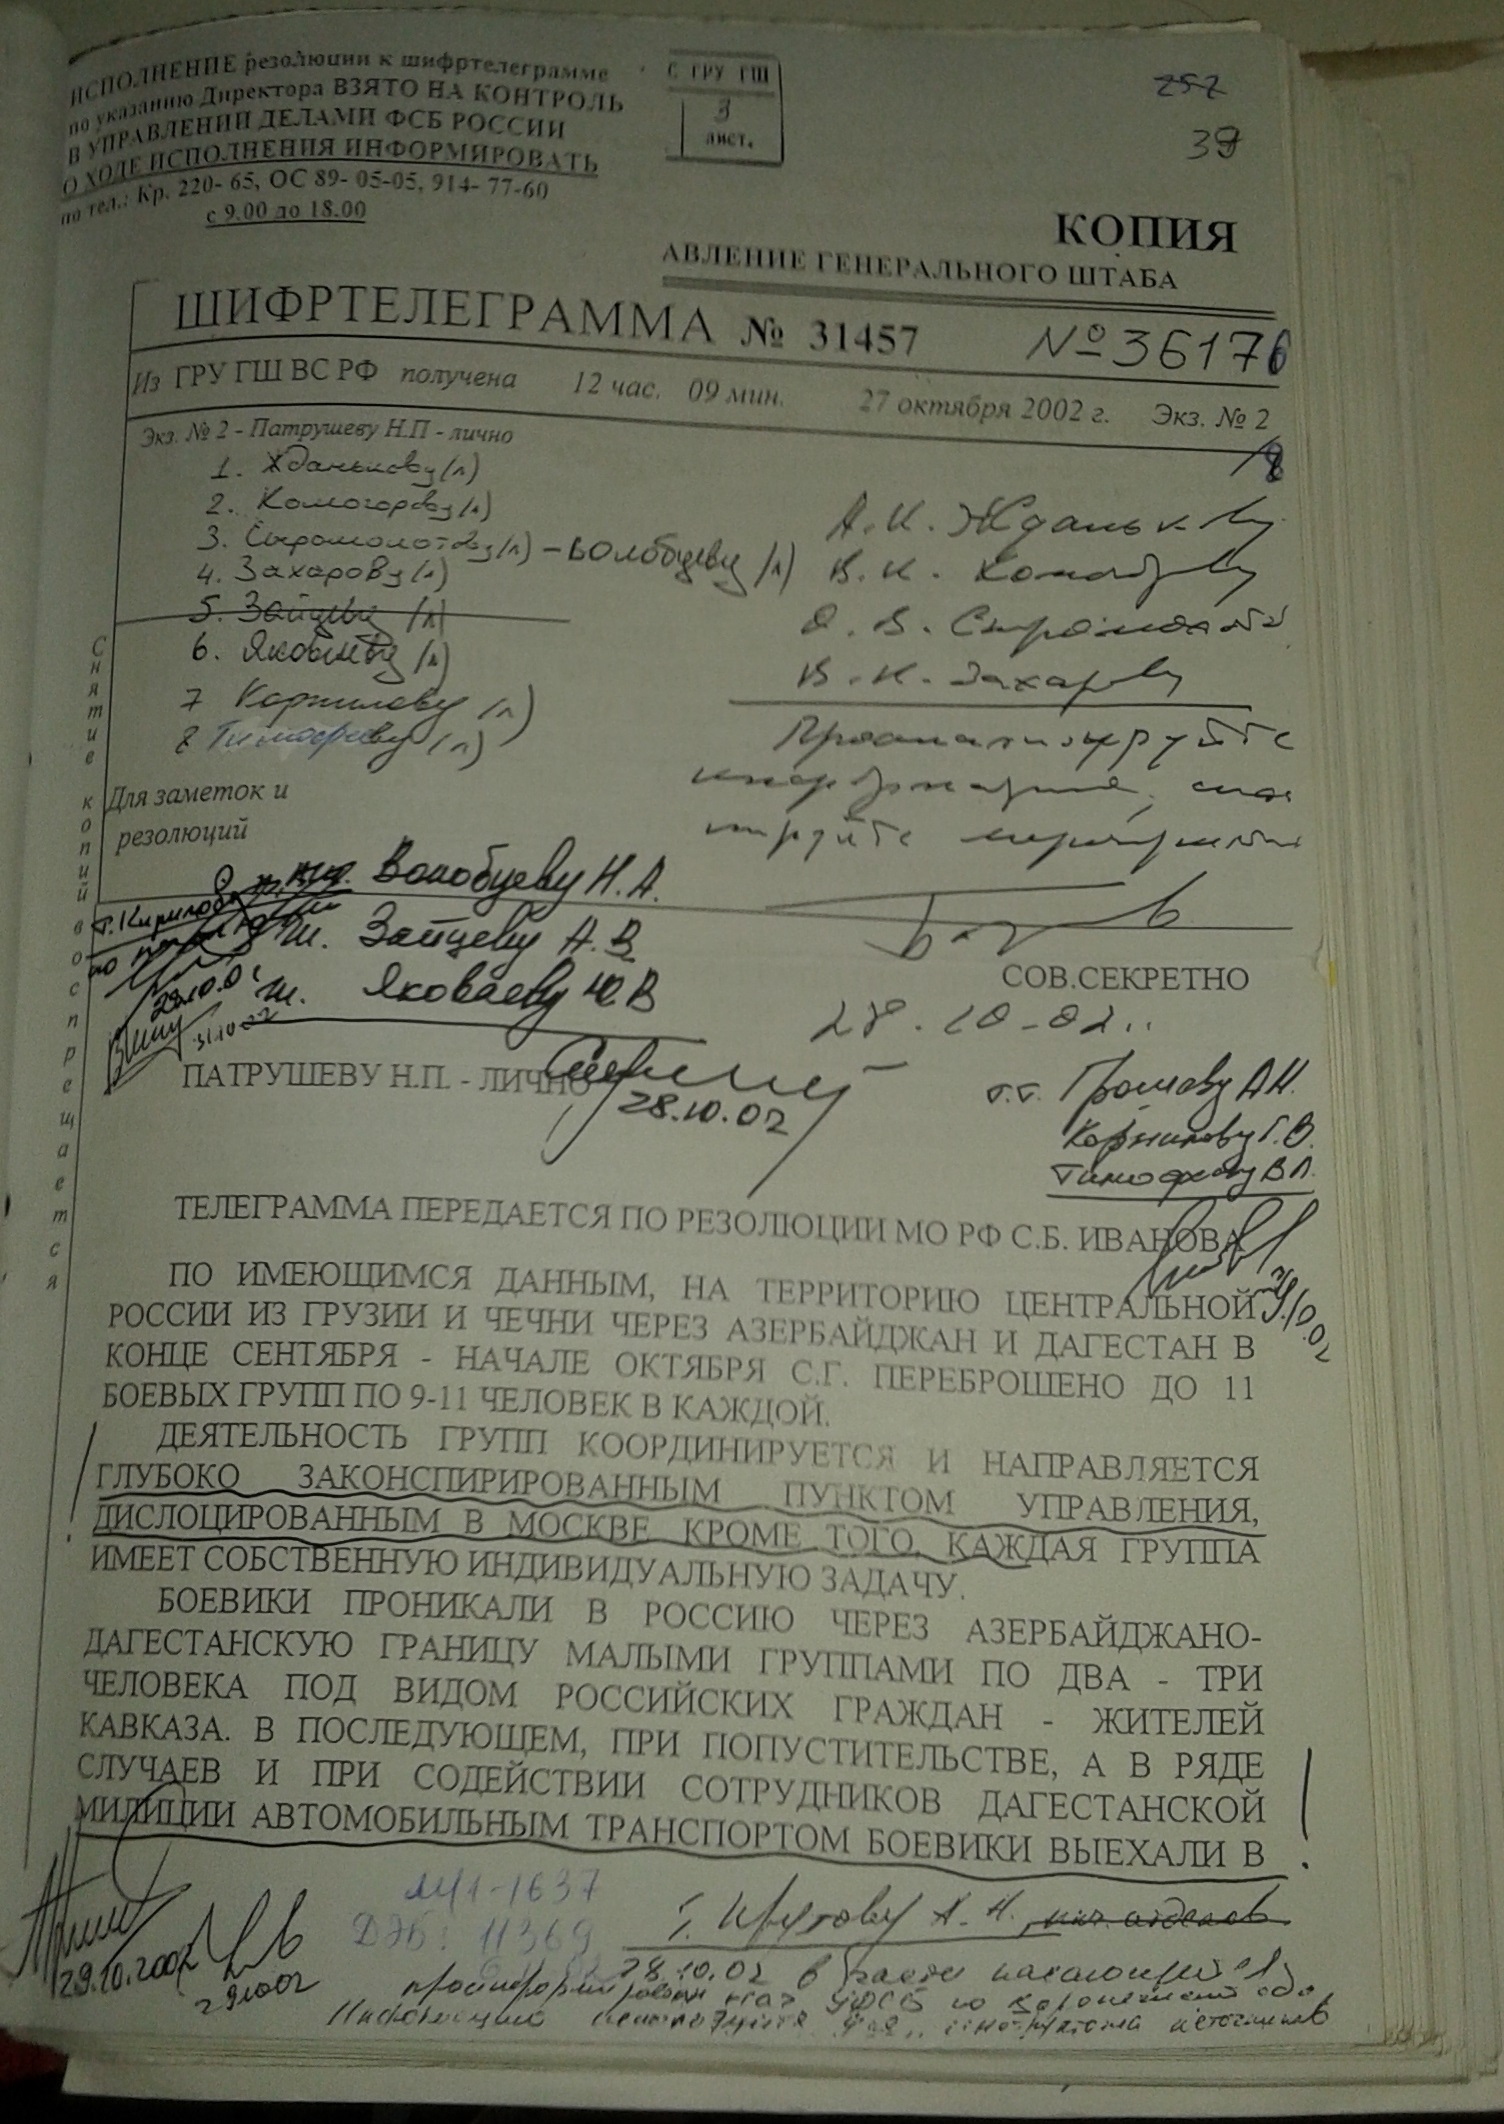 ИСПОЛНЕНИЕ резолюции к шифртелеграмме
по указанию Директора ВЗЯТО НА КОНТРОЛЬ
В УПРАВЛЕНИИ ДЕЛАМИ ФСБ РОССИИ
О ХОДЕ ИСПОЛНЕНИЯ ИНФОРМИРОВАТЬ
по тел.: Кр. 220- 65, ОС 89- 05-05, 914- 77-60
с 9.00 до 18.00
С ГРУ ГШ
3
лист.
257
39
КОПИЯ
АВЛЕНИЕ ГЕНЕРАЛЬНОГО ШТАБА
ШИФРТЕЛЕГРАММА № 31457 № 36176
Из ГРУ ГШ ВС РФ получена 12 час. 09 мин. 27 октября 2002 г. Экз. № 2
Экз. № 2 - Патрушеву Н.П - лично
1. Жданькову (л)
2. Комогорову (л)
3. Сыромолотову (л) - Волобуеву (л)
4. Захарову (л)
5. Зайцеву (л)
6. Яковлеву (л)
7 Корнилову (л)
8 Тимофееву (л)
А.И. Жданькову
В.И. Комогорову
О.В. Сыромолотову
В.И. Захарову
Проанализируйте
информацию,
мероприятия
Снятие копий воспрещается
Для заметок и
резолюций
Волобуеву Н.А.
т. Зайцеву А.В
т. Яковлеву Ю.В
29.10.02
31.10.02
СОВ.СЕКРЕТНО
28.10.02
ПАТРУШЕВУ Н.П. - ЛИЧНО
28.10.02
т.т. Громову А.Н.
Корнилову Г.В.
Тимофееву В.Л.
ТЕЛЕГРАММА ПЕРЕДАЕТСЯ ПО РЕЗОЛЮЦИИ МО РФ С.Б. ИВАНОВА
ПО ИМЕЮЩИМСЯ ДАННЫМ, НА ТЕРРИТОРИЮ ЦЕНТРАЛЬНОЙ
РОССИИ ИЗ ГРУЗИИ И ЧЕЧНИ ЧЕРЕЗ АЗЕРБАЙДЖАН И ДАГЕСТАН В
КОНЦЕ СЕНТЯБРЯ - НАЧАЛЕ ОКТЯБРЯ С.Г. ПЕРЕБРОШЕНО ДО 11
БОЕВЫХ ГРУПП ПО 9-11 ЧЕЛОВЕК В КАЖДОЙ.
ДЕЯТЕЛЬНОСТЬ ГРУПП КООРДИНИРУЕТСЯ И НАПРАВЛЯЕТСЯ
ГЛУБОКО ЗАКОНСПИРИРОВАННЫМ ПУНКТОМ УПРАВЛЕНИЯ,
ДИСЛОЦИРОВАННЫМ В МОСКВЕ. КРОМЕ ТОГО, КАЖДАЯ ГРУППА
ИМЕЕТ СОБСТВЕННУЮ ИНДИВИДУАЛЬНУЮ ЗАДАЧУ.
БОЕВИКИ ПРОНИКАЛИ В РОССИЮ ЧЕРЕЗ АЗЕРБАЙДЖАНО-
ДАГЕСТАНСКУЮ ГРАНИЦУ МАЛЫМИ ГРУППАМИ ПО ДВА - ТРИ
ЧЕЛОВЕКА ПОД ВИДОМ РОССИЙСКИХ ГРАЖДАН - ЖИТЕЛЕЙ
КАВКАЗА. В ПОСЛЕДУЮЩЕМ, ПРИ ПОПУСТИТЕЛЬСТВЕ, А В РЯДЕ
СЛУЧАЕВ И ПРИ СОДЕЙСТВИИ СОТРУДНИКОВ ДАГЕСТАНСКОЙ
МИЛИЦИИ АВТОМОБИЛЬНЫМ ТРАНСПОРТОМ БОЕВИКИ ВЫЕХАЛИ В
29.10.2002
291002
1-1637
11369
А.Н., нач. отделов
28.10.02 в части касающейся